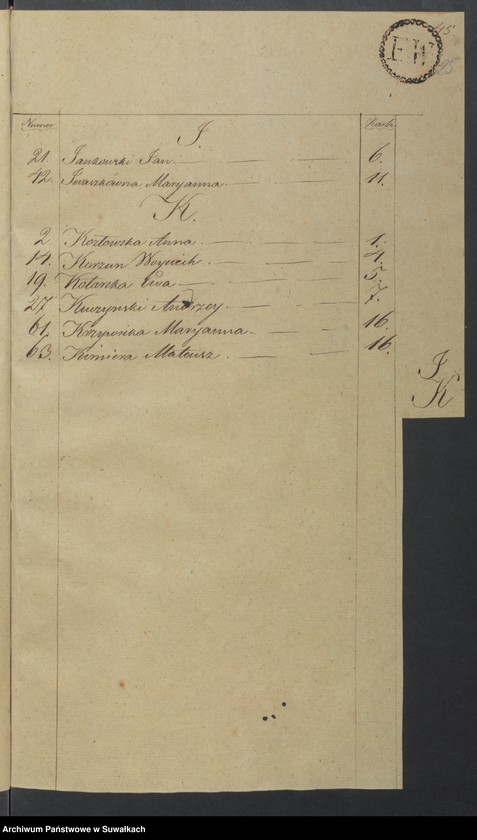 45
Numer Karta
J.
21. Jankowski Jan 6.
42. Iwaszkówna Maryanna 11.
K.
2. Kozłowska Anna 1.
14. Korzun Woyciech 4.
19. Kotarska Ewa 5.
27. Kuczynski Andrzey 7.
61. Maryanna 16.
63. Kimiera Mateusz 16.
J
K
Archiwum Państwowe w Suwałkach